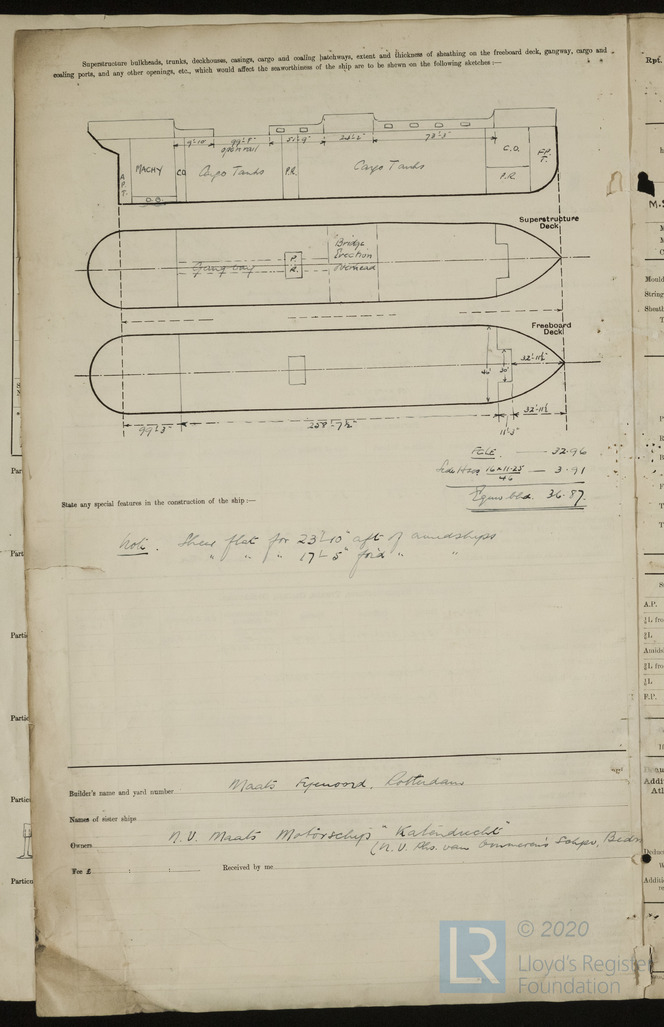 Superstructure bulkheads, trunks, deckhouses, casings, cargo and coaling hatchways, extent and thickness of sheathing on the freeboard deck, gangway, cargo and
coaling ports, and any other openings, etc., which would affect the seaworthiness of the ship are to be shewn on the following sketches:—
open rail
A.P.T. MACHY C.D Cargo Tanks P.R. Cargo Tanks C.D. F.P.T.
O.B. P.R.
Superstructure
Deck
Gangway P.R. Bridge
Erection
Overhead
Freeboard
Deck
32'-11½"
46' 30'
99'-3" 258'-7½" 11'-3" 32'-11½"
FCLE. — 32.96
16 x 11.25 / 46 — 3.91
Equiv bhd. 36.87.
State any special features in the construction of the ship:—
Note. Sheer flat for 23'-10" aft of amidships
" " " 17'-5" for'd " "
Builder's name and yard number Maats Fijenoord, Rotterdam
Names of sister ships
Owners N.V. Maats Motorschip "Katendrecht"
(N.V. Phs. van Ommeren's Schpv, Bedr
Fee £ : : Received by me
Rpf.
M.S
Mould
String
Sheath
Par
Part
Parti
Partic
Partic
Partic
Partico
A.P.
¼L
Amids
¼L
F.P.
Addi
Deduc
Additi
LR © 2020
Lloyd's Register
Foundation